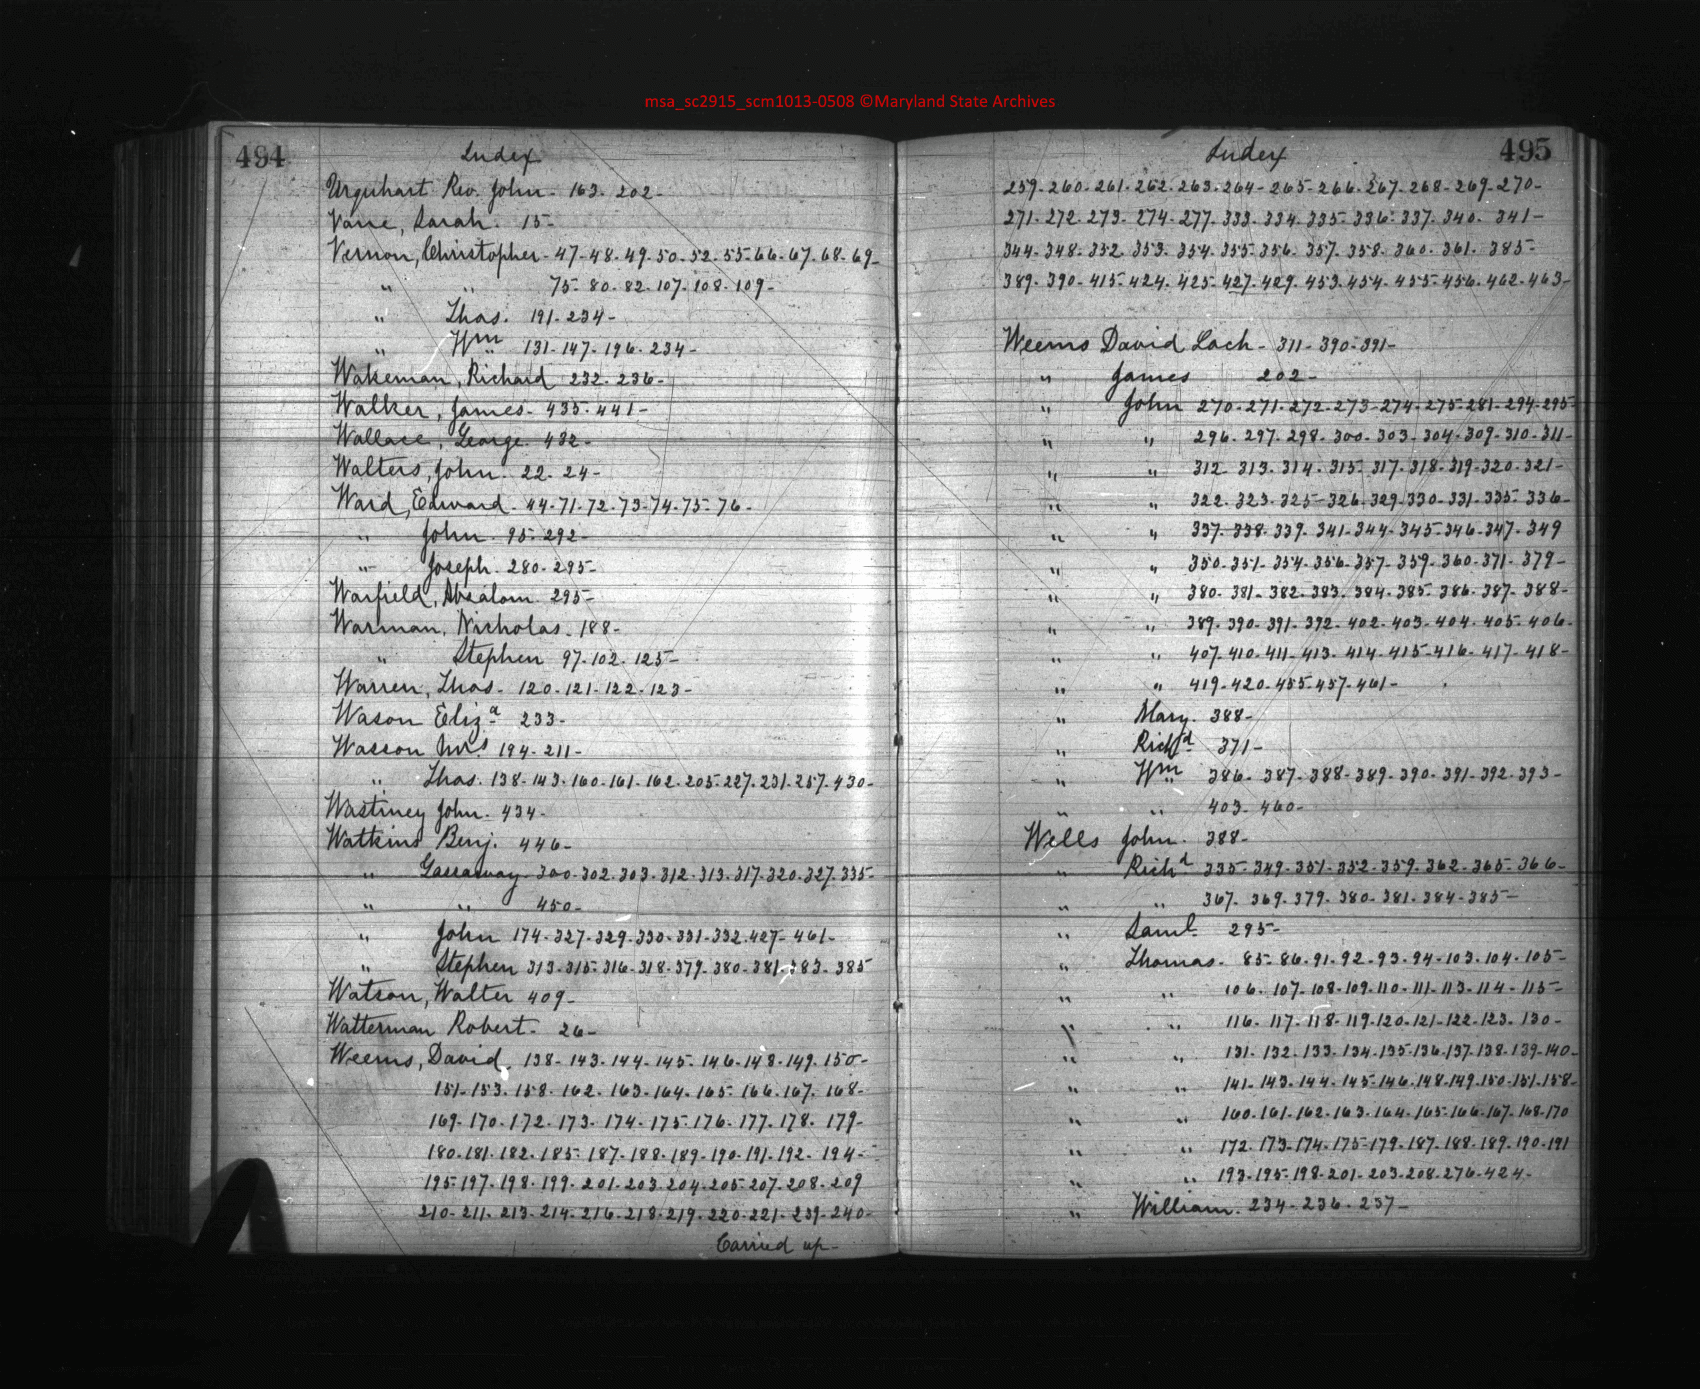 msa_sc2915_scm1013-0508 ©Maryland State Archives
494
Index
Urquhart Rev. John - 163. 202-
Vane, Sarah. 15-
Vernon, Christopher - 47-48-49-50-52-55-66-67-68-69-
" " 75-80-82-107-108-109-
" Thos. 191-234-
" Wm 131-147-196-234-
Wakeman, Richard 232-236-
Walker, James- 435-441-
Wallace, George. 432-
Walters, John. 22-24-
Ward, Edward. 44-71-72-73-74-75-76-
" John. 95-292-
" Joseph. 280-295-
Warfield, Absalom. 295-
Warman, Nicholas. 188-
" Stephen 97-102-125-
Warren, Thos. 120-121-122-123-
Wason Eliza 233-
Wasson Mrs 194-211-
" Thos. 138-143-160-161-162-205-227-231-257-430-
Wastiney John. 434-
Watkins Benj. 446-
" Gassaway- 300-302-303-312-313-317-320-327-335-
" " 450-
" John 174-327-329-330-331-332-427-461-
" Stephen 313-315-316-318-379-380-381-383-385
Watson, Walter 409-
Watterman Robert- 26-
Weems, David. 138-143-144-145-146-148-149-150-
151-153-158-162-163-164-165-166-167-168-
169-170-172-173-174-175-176-177-178-179-
180-181-182-185-187-188-189-190-191-192-194-
195-197-198-199-201-203-204-205-207-208-209
210-211-213-214-216-218-219-220-221-239-240-
Carried up-
495
Index
259-260-261-262-263-264-265-266-267-268-269-270-
271-272-273-274-277-333-334-335-336-337-340-341-
344-348-352-353-354-355-356-357-358-360-361-385-
389-390-415-424-425-427-429-453-454-455-456-462-463-
Weems David Loch- 311-390-391-
" James 202-
" John 270-271-272-273-274-275-281-294-295-
" " 296-297-298-300-303-304-309-310-311-
" " 312-313-314-315-317-318-319-320-321-
" " 322-323-325-326-329-330-331-335-336-
" " 337-338-339-341-344-345-346-347-349
" " 350-351-354-356-357-359-360-371-379-
" " 380-381-382-383-384-385-386-387-388-
" " 389-390-391-392-402-403-404-405-406-
" " 407-410-411-413-414-415-416-417-418-
" " 419-420-455-457-461-
" Mary. 388-
" Richd 371-
" Wm 386-387-388-389-390-391-392-393-
" " 403-460-
Wells John. 388-
" Richd 335-349-351-352-359-362-365-366-
" " 367-369-379-380-381-384-385-
" Saml. 295-
" Thomas. 85-86-91-92-93-94-103-104-105-
" " 106-107-108-109-110-111-113-114-115-
" " 116-117-118-119-120-121-122-123-130-
" " 131-132-133-134-135-136-137-138-139-140-
" " 141-143-144-145-146-148-149-150-151-158-
" " 160-161-162-163-164-165-166-167-168-170
" " 172-173-174-175-179-187-188-189-190-191
" " 193-195-198-201-203-208-276-424-
" William. 234-236-237-